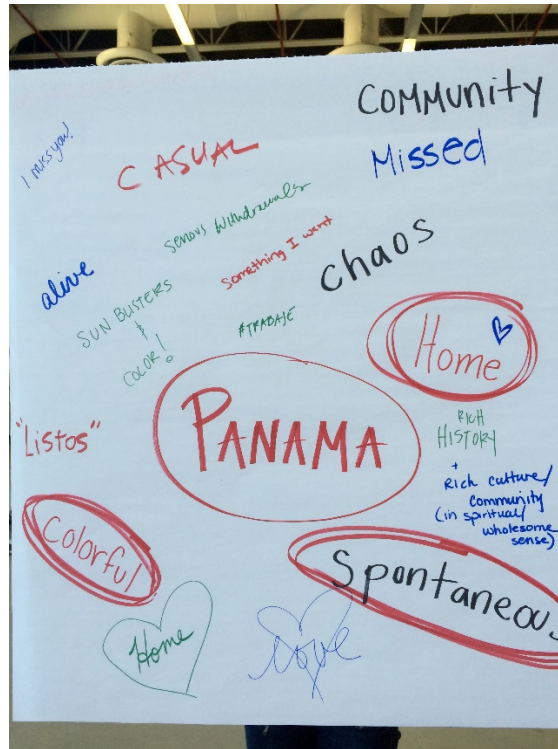 COMMUNITY
I miss you!
CASUAL
Missed
Serious Withdrawals
Something I want
chaos
alive
SUN BUSTERS
&
COLOR!
#TRABAJE
Home
PANAMA
RICH
HISTORY
"Listos"
+
Rich culture/
community
(in spiritual/
wholesome
sense)
Colorful
Spontaneous
Home
love